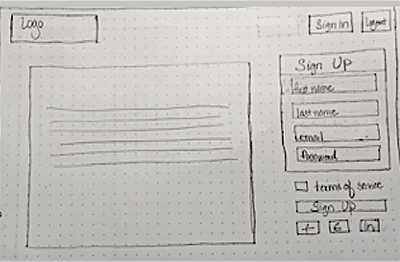 Logo
Sign In
Sign Up
first name
last name
email
Password
terms of service
Sign Up
in